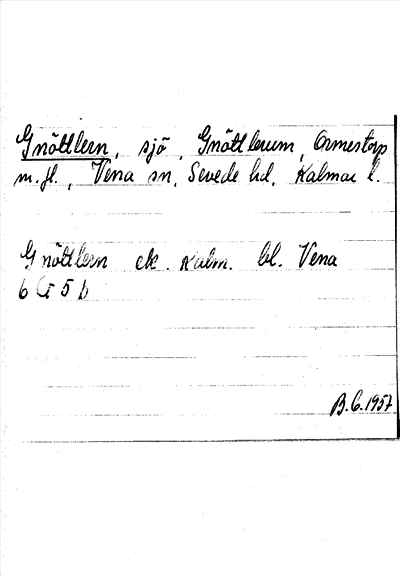 Gnöttlern, sjö, Gnöttlerum, Ormestorp
m. fl., Vena sn, Sevede hd, Kalmar l.
Gnöttlern ek. Kalm. bl. Vena
6 G 5 b
B.G.1957